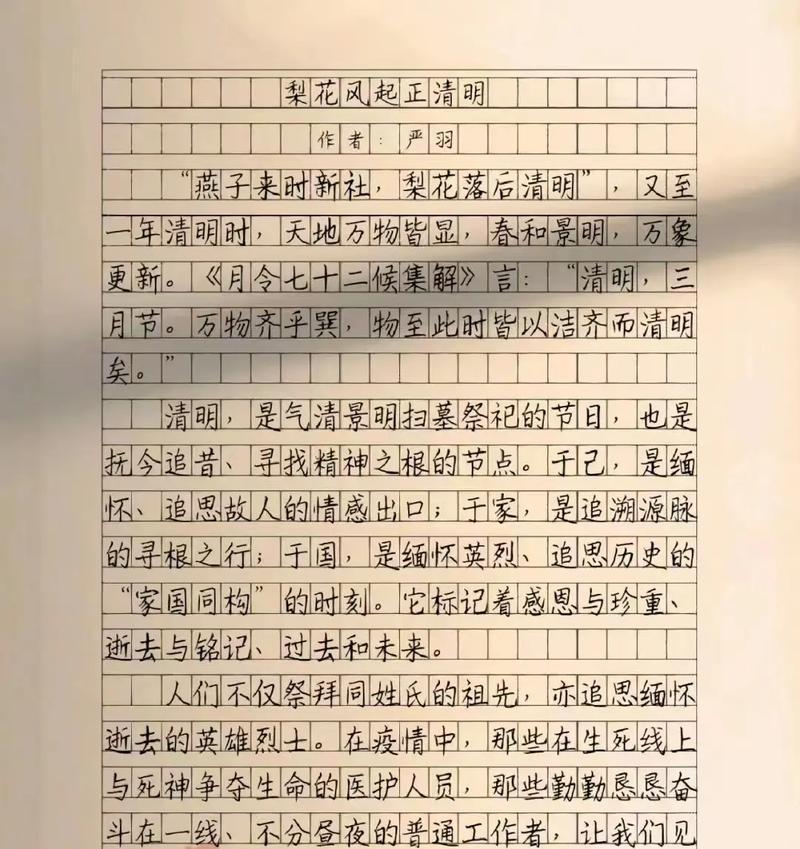 梨花风起正清明
作者：严羽
“燕子来时新社，梨花落后清明”，又至
一年清明时，天地万物皆显，春和景明，万象
更新。《月令七十二候集解》言：“清明，三
月节。万物齐乎巽，物至此时皆以洁齐而清明
矣。”
清明，是气清景明扫墓祭祀的节日，也是
抚今追昔、寻找精神之根的节点。于己，是缅
怀、追思故人的情感出口；于家，是追溯源脉
的寻根之行；于国，是缅怀英烈、追思历史的
“家国同构”的时刻。它标记着感恩与珍重、
逝去与铭记、过去和未来。
人们不仅祭拜同姓氏的祖先，亦追思缅怀
逝去的英雄烈士。在疫情中，那些在生死线上
与死神争夺生命的医护人员，那些勤勤恳恳奋
斗在一线、不分昼夜的普通工作者，让我们见